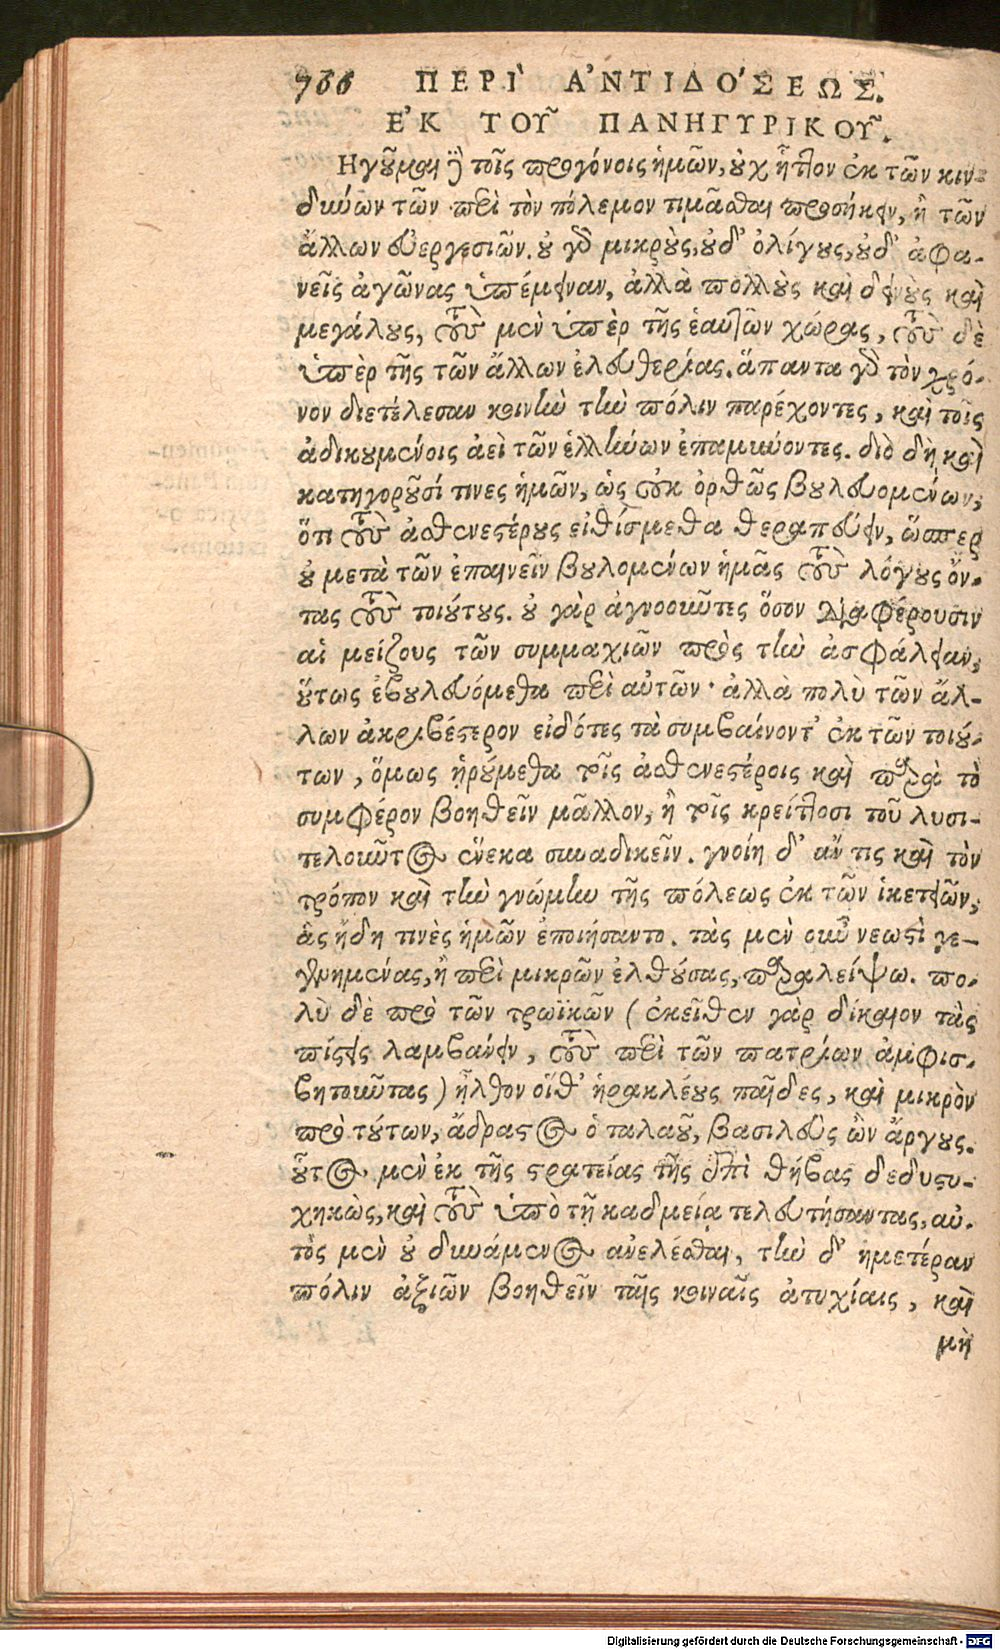 766 ΠΕΡῚ ἈΝΤΙΔΌΣΕΩΣ.
ἘΚ ΤΟΥ͂ ΠΑΝΗΓΥΡΙΚΟΥ͂.
Ἡγοῦμαι δὲ τοῖς προγόνοις ἡμῶν, οὐχ ἧττον ἐκ τῶν κιν-
δύνων τῶν περὶ τὸν πόλεμον τιμᾶσθαι προσήκειν, ἢ τῶν
ἄλλων εὐεργεσιῶν. οὐ γὰρ μικροὺς, οὐδ' ὀλίγους, οὐδ' ἀφα-
νεῖς ἀγῶνας ὑπέμειναν, ἀλλὰ πολλοὺς καὶ δεινοὺς καὶ
μεγάλους, τοὺς μὲν ὑπὲρ τῆς ἑαυτῶν χώρας, τοὺς δὲ
ὑπὲρ τῆς τῶν ἄλλων ἐλευθερίας. ἅπαντα γὰρ τὸν χρό-
νον διετέλεσαν κοινὴν τὴν πόλιν παρέχοντες, καὶ τοῖς
ἀδικουμένοις ἀεὶ τῶν ἑλλήνων ἐπαμύνοντες. διὸ δὴ καὶ
κατηγοροῦσί τινες ἡμῶν, ὡς οὐκ ὀρθῶς βουλευομένων,
ὅτι τοὺς ἀσθενεστέρους εἰθίσμεθα θεραπεύειν, ὥσπερ
οὐ μετὰ τῶν ἐπαινεῖν βουλομένων ἡμᾶς τοὺς λόγους ὄν-
τας τοὺς τοιούτους. οὐ γὰρ ἀγνοοῦντες ὅσον διαφέρουσιν
αἱ μείζους τῶν συμμαχιῶν πρὸς τὴν ἀσφάλειαν,
οὕτως ἐβουλευόμεθα περὶ αὐτῶν· ἀλλὰ πολὺ τῶν ἄλ-
λων ἀκριβέστερον εἰδότες τὰ συμβαίνοντ' ἐκ τῶν τοιού-
των, ὅμως ᾑρούμεθα τοῖς ἀσθενεστέροις καὶ παρὰ τὸ
συμφέρον βοηθεῖν μᾶλλον, ἢ τοῖς κρείττοσι τοῦ λυσι-
τελοῦντος ἕνεκα συναδικεῖν. γνοίη δ' ἄν τις καὶ τὸν
τρόπον καὶ τὴν γνώμην τῆς πόλεως ἐκ τῶν ἱκετειῶν,
ἃς ἤδη τινὲς ἡμῶν ἐποιήσαντο. τὰς μὲν οὖν νεωστὶ γε-
γενημένας, ἢ περὶ μικρῶν ἐλθούσας, παραλείψω. πο-
λὺ δὲ πρὸ τῶν τρωϊκῶν (ἐκεῖθεν γὰρ δίκαιον τὰς
πίστεις λαμβάνειν, τοὺς περὶ τῶν πατρίων ἀμφισ-
βητοῦντας) ἦλθον οἵθ' ἡρακλέους παῖδες, καὶ μικρὸν
πρὸ τούτων, ἄδραστος ὁ ταλαοῦ, βασιλεὺς ὢν ἄργους.
οὗτος μὲν ἐκ τῆς στρατείας τῆς ἐπὶ θήβας δεδυστυ-
χηκὼς, καὶ τοὺς ὑπὸ τῇ καδμείᾳ τελευτήσαντας, αὐ-
τὸς μὲν οὐ δυνάμενος ἀνελέσθαι, τὴν δ' ἡμετέραν
πόλιν ἀξιῶν βοηθεῖν ταῖς κοιναῖς ἀτυχίαις, καὶ
μὴ
Digitalisierung gefördert durch die Deutsche Forschungsgemeinschaft - DFG